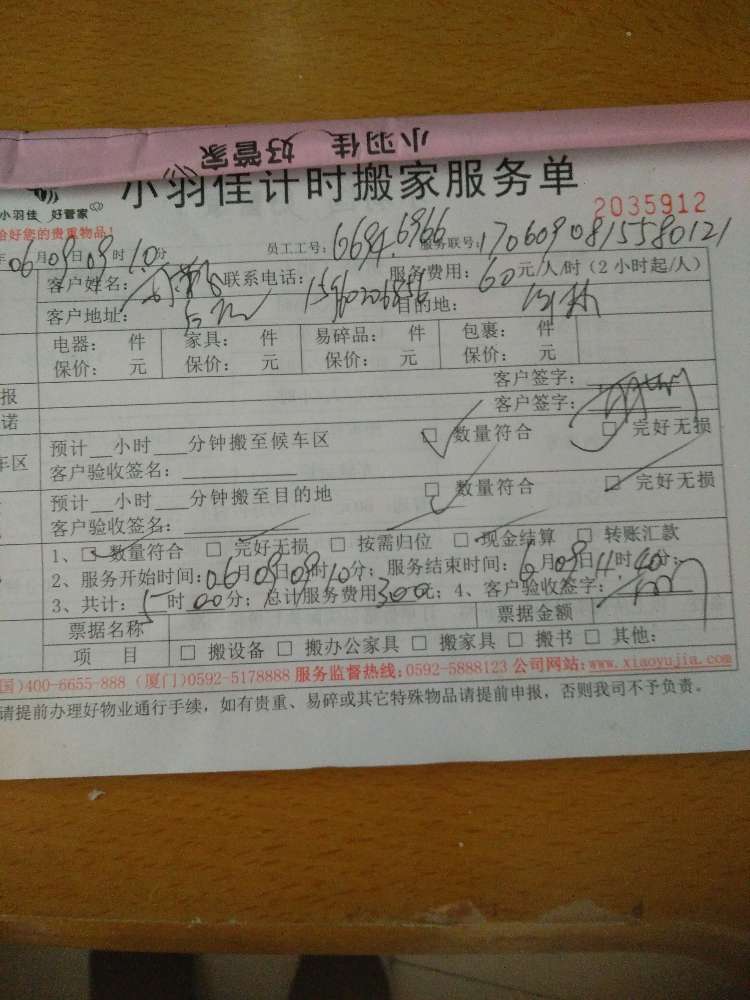 小羽佳 好管家
小羽佳计时搬家服务单
小羽佳 好管家
2035912
给好您的贵重物品!
员工工号: 6694.6966 服务联号: 17060908155580121
年06月09日09时10分
客户姓名: 联系电话: 服务费用: 60元/人/时(2小时起/人)
客户地址: 目的地:
电器: 件 家具: 件 易碎品: 件 包裹: 件
保价: 元 保价: 元 保价: 元 保价: 元
客户签字:
报
客户签字:
诺
预计__小时___分钟搬至候车区 □ 数量符合 □ 完好无损
车区 客户验收签名:
预计__小时___分钟搬至目的地 □ 数量符合 □ 完好无损
客户验收签名:
1、□ 数量符合 □ 完好无损 □ 按需归位 □ 现金结算 □ 转账汇款
2、服务开始时间:06月09日09时10分; 服务结束时间:6月09日11时40分;
3、共计:5时00分; 总计服务费用300元; 4、客户验收签字:
票据名称 票据金额
项 目 □ 搬设备 □ 搬办公家具 □ 搬家具 □ 搬书 □ 其他:
国)400-6655-888 (厦门)0592-5178888 服务监督热线:0592-5888123 公司网站:www.xiaoyujia.com
请提前办理好物业通行手续，如有贵重、易碎或其它特殊物品请提前申报，否则我司不予负责。